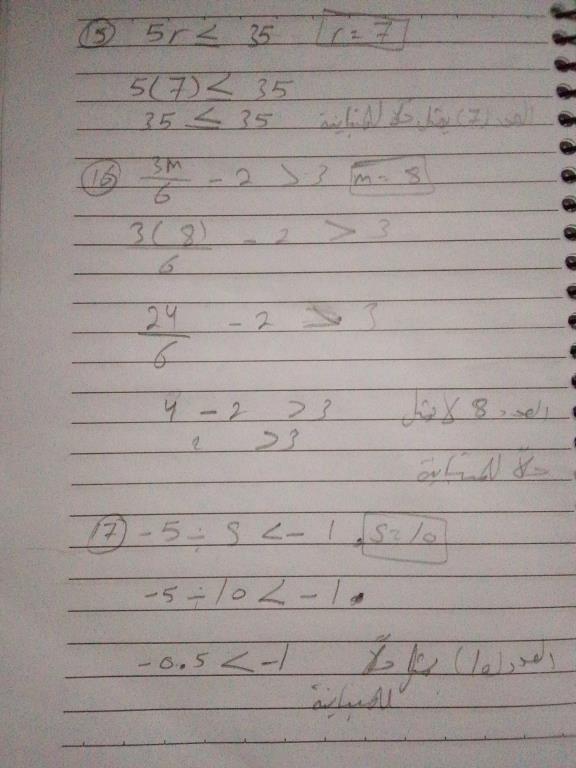 15 5r ≤ 35 r = 7
5(7) < 35
35 ≤ 35 العدد (7) يمثل حلا للمتباينة
16 3m/6 - 2 > 3 m = 8
3(8)/6 - 2 > 3
24/6 - 2 > 3
4 - 2 > 3 العدد 8 لا يمثل
2 > 3
حلاً للمتباينة
17 -5 ÷ S < -1 . S = 10
-5 ÷ 10 < -1 .
-0.5 < -1 العدد (10) يمثل حلاً
للمتباينة